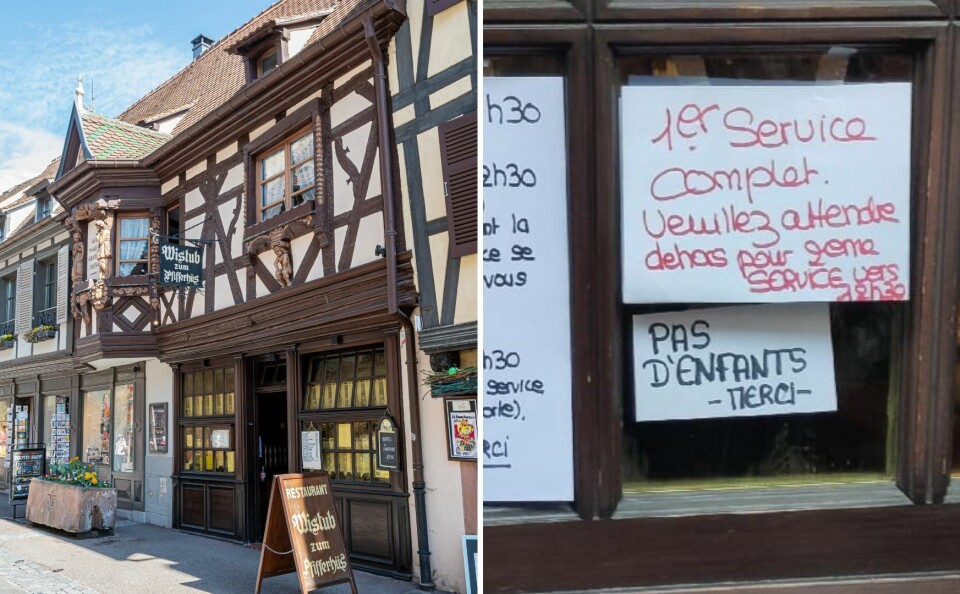 Wistub
zum
Pfifferhüs
RESTAURANT
Wistub
zum
Pfifferhüs
h30
2h30
nt la
ce se
vous
h30
service
orte).
rci
1er Service
complet.
Veuillez attendre
dehors pour 2eme
SERVICE vers
PAS
D'ENFANTS
-MERCI-